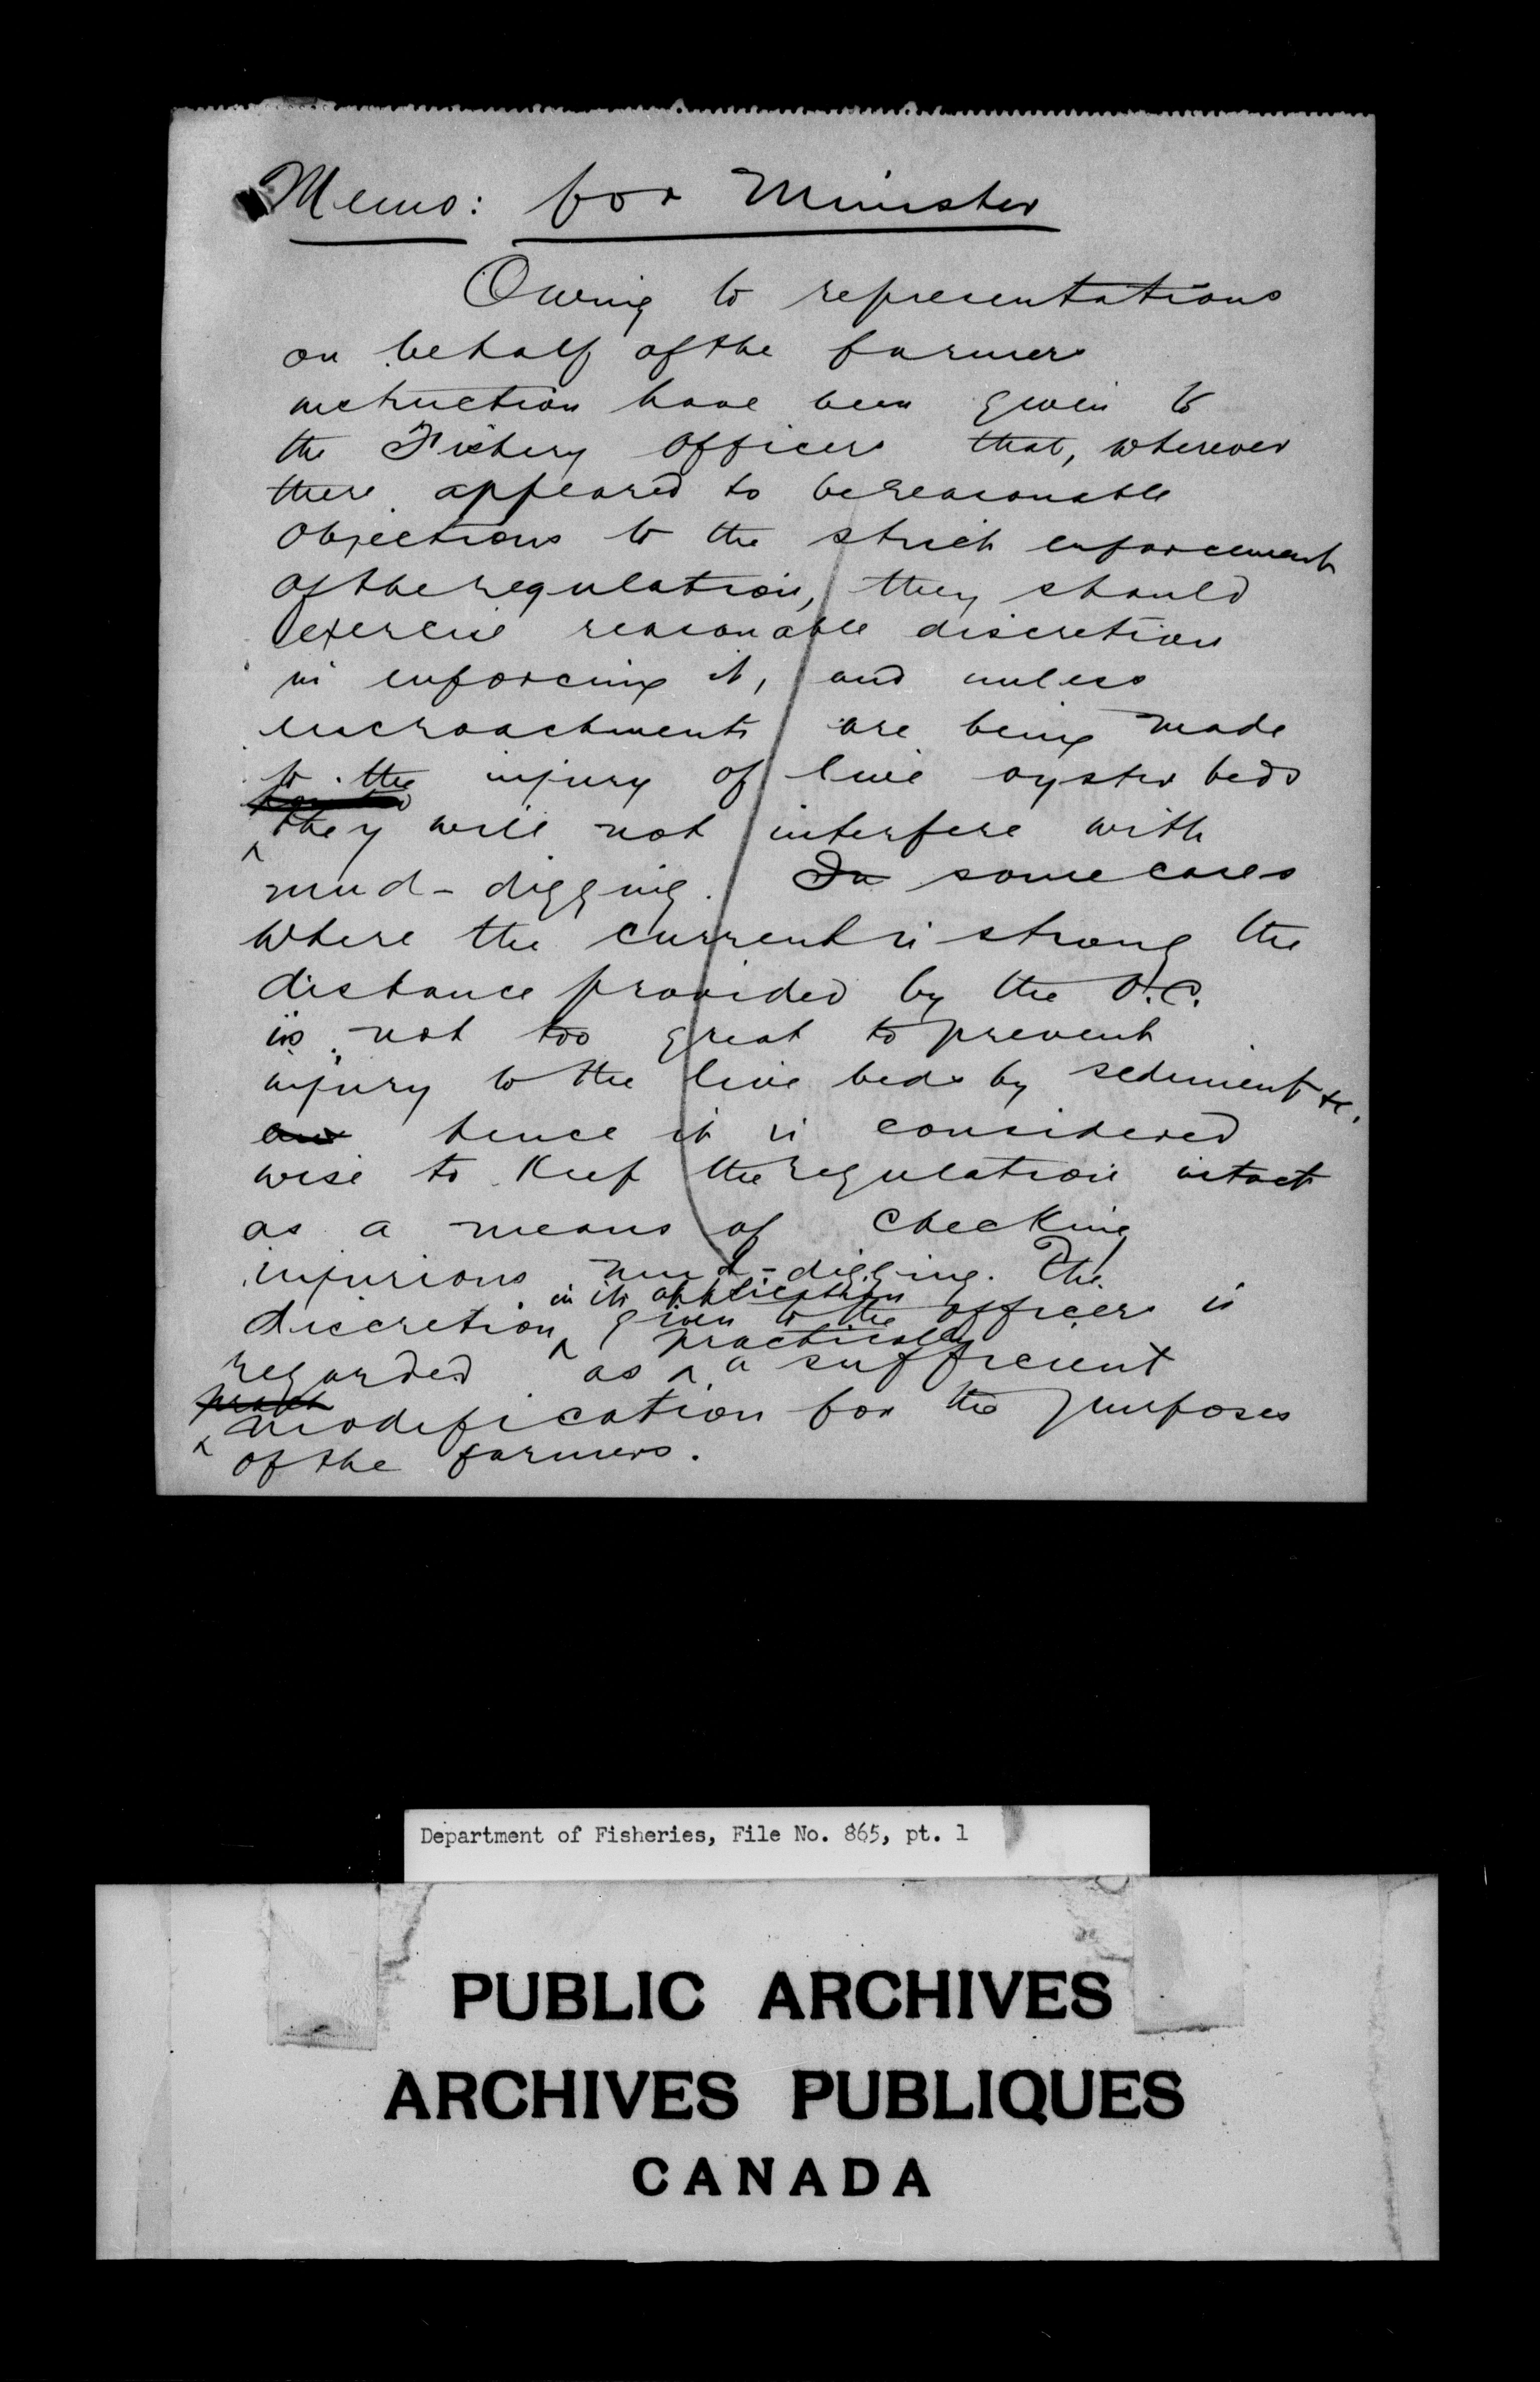 Memo: for Minister
Owing to representations
on behalf of the farmers
instruction have been given to
the Fishery Officers that, wherever
there appeared to be reasonable
objections to the strict enforcement
of the regulation, they should
exercise reasonable discretion
in enforcing it, and unless
encroachments are being made
to the injury of live oyster beds
they will not interfere with
mud-digging. In some cases
where the current is strong the
distance provided by the O.C.
is not too great to prevent
injury to the live beds by sediment &c.
hence it is considered
wise to keep the regulation intact
as a means of checking
injurious mud-digging. The
in its application
discretion given to the officers is
practically
regarded as a sufficient
modification for the purposes
of the farmers.
Department of Fisheries, File No. 865, pt. 1
PUBLIC ARCHIVES
ARCHIVES PUBLIQUES
CANADA